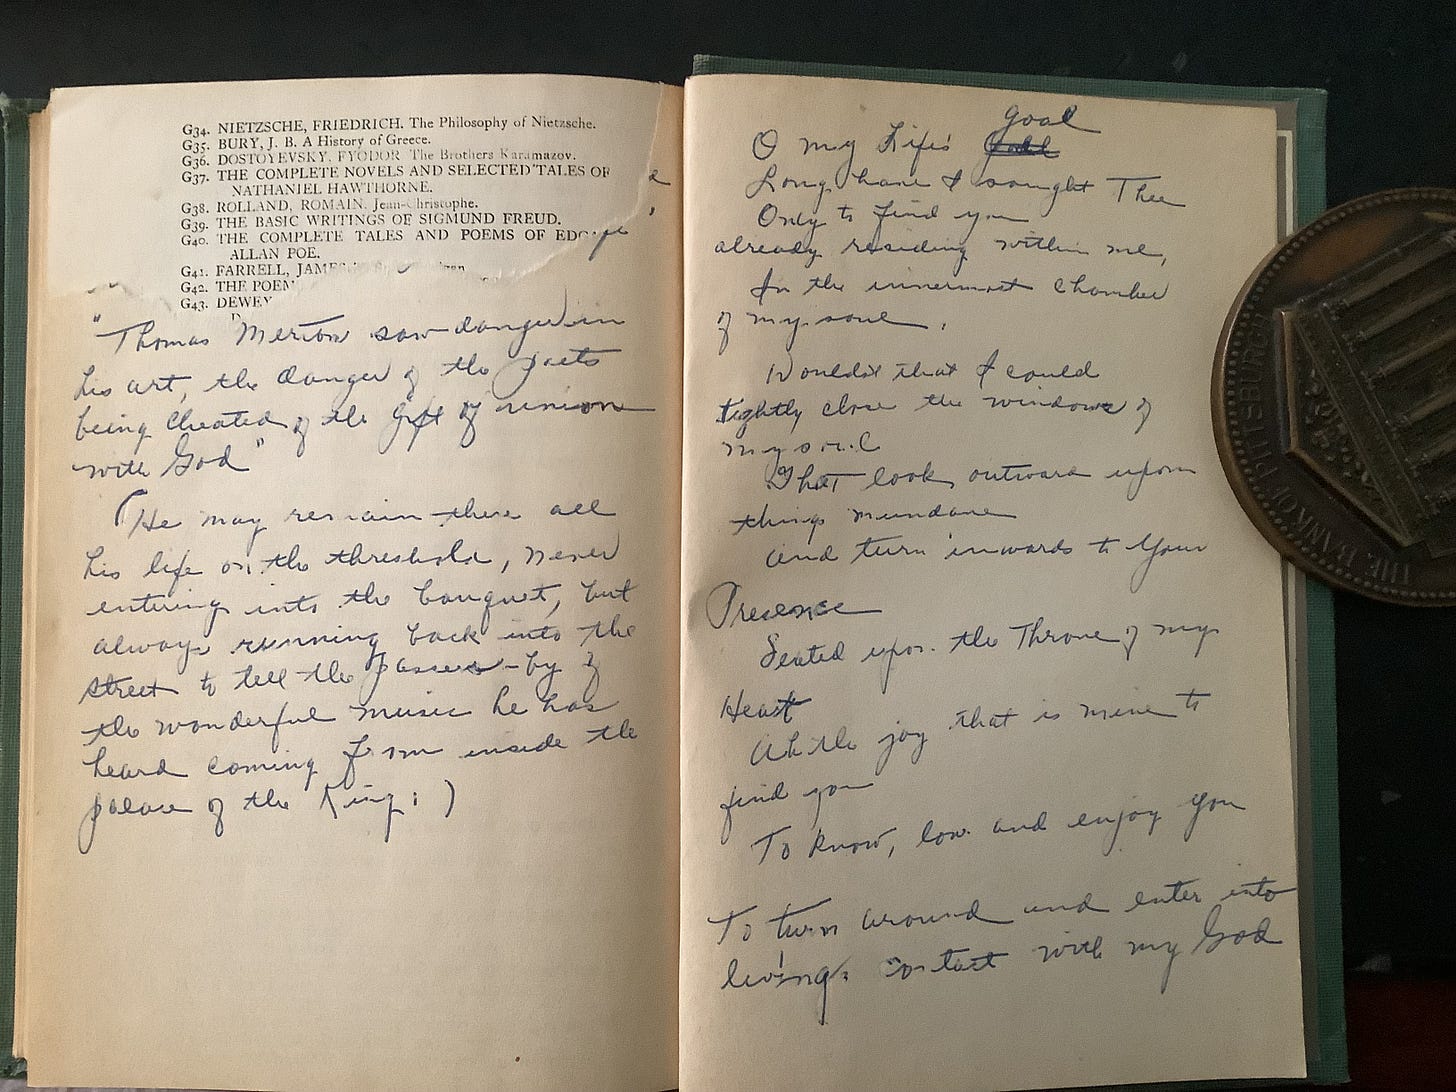 G34. NIETZSCHE, FRIEDRICH. The Philosophy of Nietzsche.
G35. BURY, J. B. A History of Greece.
G36. DOSTOYEVSKY, FYODOR. The Brothers Karamazov.
G37. THE COMPLETE NOVELS AND SELECTED TALES OF
NATHANIEL HAWTHORNE.
G38. ROLLAND, ROMAIN. Jean-Christophe.
G39. THE BASIC WRITINGS OF SIGMUND FREUD.
G40. THE COMPLETE TALES AND POEMS OF EDGAR
ALLAN POE.
G41. FARRELL, JAMES
G42. THE POEM
G43. DEWEY
"Thomas Merton saw danger in
his art, the danger of the poets
being cheated of the gift of union
with God"
(He may remain there all
his life on the threshold, never
entering into the banquet, but
always running back into the
street to tell the passers-by of
the wonderful music he has
heard coming from inside the
palace of the King.)
goal
O my Life's
Long have I sought Thee
Only to find you
already residing within me,
In the innermost chamber
of my soul.
Wouldst that I could
tightly close the windows of
my soul
That look outward upon
things mundane
and turn inwards to Your
Presence
Seated upon the Throne of my
Heart
Ah the joy that is mine to
find you
To know, love and enjoy You
To turn around and enter into
living contact with my God
THE BANK OF PITTSBURGH